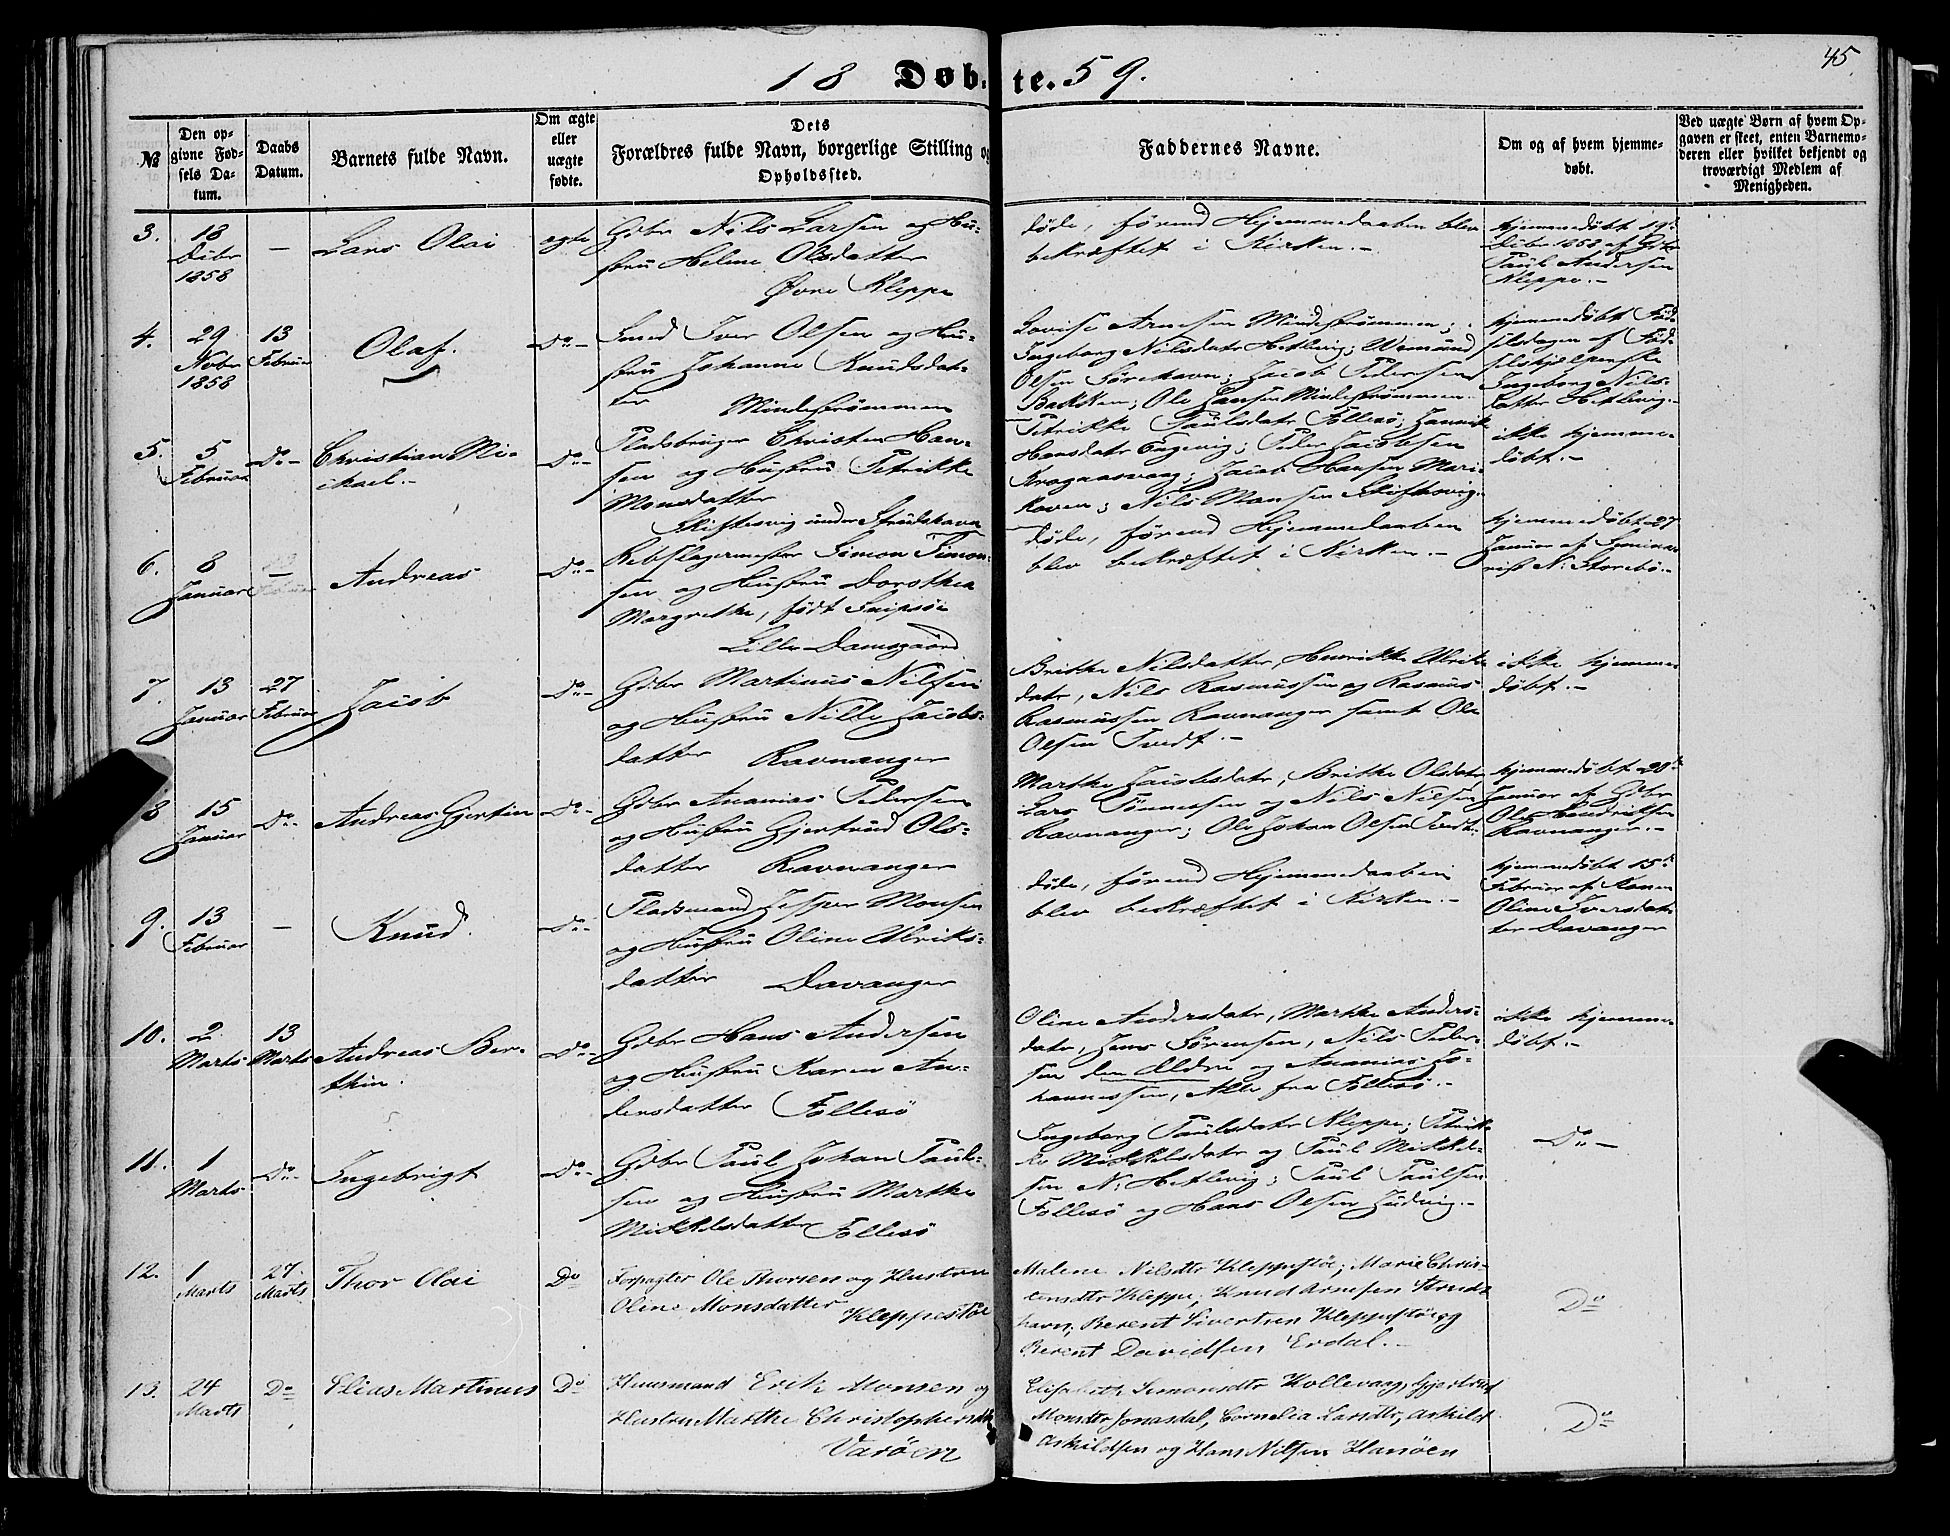 45.
18 Døbte. 59.
№
Den opgivne Fødsels Datum.
Daabs Datum.
Barnets fulde Navn.
Om ægte eller uægte fødte.
Dets Forældres fulde Navn, borgerlige Stilling og Opholdssted.
Faddernes Navne.
Om og af hvem hjemmedøbt.
Ved uægte Børn af hvem Opgaven er skeet, enten Barnemoderen eller hvilket bekjendt og troværdigt Medlem af Menigheden.
3.
18
Debr
1858
—
Lars Olai
egte
Gdbr Nils Larsen og Hu-
stru Helene Olsdatter
Øvre Kleppe
døde, førend Hjemmedaaben blev
bekræftet i Kirken.-
hjemmedøbt 19de
Debr 1858 af Gdbr
Paul Andersen
Kleppe.-
4.
29
Novbr
1858
13
Februar
Olaf.
Do-
Smed Iver Olsen og Hu-
stru Johanne Knudsdat-
ter Mindestrømmen
Lovise Arnesen Mindestrømmen;
Ingeborg Nilsdatr Hetlevig;
Olsen Strekhavn; Jacob Pedersen
Bakken; Ole Hansen Mindestrømmen.
hjemmedøbt Fød-
selsdagen af Fød-
selshjelperske
Ingeborg Nils-
datter Hetlevig.-
5.
5
Februar
Do-
Christian Mi-
ckael.-
Do-
Pladsbruger Christen Han-
sen og Hustru Petrikke
Monsdatter
Skiftesvig under Strudshavn
Petrikke Paulsdatr Follesø;
Hansdatr Engevig; Peder Jacobsen
Kragaasvaag; Jacob Hansen Mari-
koven; Nils Monsen Skiftesvig.
ikke hjemme-
døbt.-
6.
8
Januar
—
Andreas
Do-
Rebslagermester Simon Simon-
sen og Hustru Dorothea
Margrethe, født
Lille Damsgaard
døde, førend Hjemmedaaben
blev bekræftet i Kirken.-
hjemmedøbt 27
Januar af Semina-
rist N: Storebø.-
7.
13
Januar
27
Februar
Jacob
Do-
Gdbr Martinus Nilsen
og Hustru Nille Jacobs-
datter Ravnanger
Brithe Nilsdatter, Henrikke Ulriks-
datr, Nils Rasmussen og Rasmus
Rasmussen Ravnanger samt Ole
Olsen Tvedt.-
ikke hjemme-
døbt.-
8
15
Januar
Do-
Andreas Gjertin
Do-
Gdbr Ananias Pedersen
og Hustru Gjertrud Ols-
datter Ravnanger
Marthe Jacobsdatr, Brithe Olsdatr
Lars Tønnessen og Nils Nilsen
Ravnanger; Ole Johan Olsen Tvedt.
hjemmedøbt 20de
Januar af Gdbr
Ole Hendriksen
Ravnanger.-
9.
13
Februar
—
Knud.
Do-
Pladsmand Jesper Monsen
og Hustru Oline Ulriks-
datter Davanger
døde, førend Hjemmedaaben
blev bekræftet i Kirken.-
hjemmedøbt 15de
Februar af Konen
Oline Iversdat-
ter Davanger
10.
2
Marts
13
Marts
Andreas Ber-
thin.
Do-
Gdbr Hans Andersen
og Hustru Karen An-
dersdatter Follesø
Oline Andersdatr, Marthe Anders-
datr, Jens Sørensen, Nils Peder-
sen den Ældre og Ananias Jo-
hannessen, Alle fra Follesø.-
ikke hjemme-
døbt.-
11.
1
Marts
Do-
Ingebrigt
Do-
Gdbr Paul Johan Paul-
sen og Hustru Marthe
Mikkelsdatter Follesø
Ingeborg Paulsdatr Kleppe; Petrik-
ke Mikkelsdatr og Paul Mikkel-
sen N: Hetlevig; Paul Paulsen
Follesø og Hans Olsen Judvig.-
Do-
12.
1
Marts
27
Marts
Thor Olai
Do
Forpagter Ole Thorsen og Hustru
Oline Monsdatter
Kleppestøe
Malene Nilsdtr Kleppestøe; Marie Chris-
tensdtr Kleppe; Knud Arnesen Struds-
havn, Berent Sivertsen Kleppestøe og
Berent Davidsen Erdal.-
Do
13.
24
Marts
Do
Elias Martinus
Do
Huusmand Erik Monsen og
Hustru Marthe Christophersdtr
Varøen
Elisabeth Simonsdtr Kollevaag, Gjertrud
Monsdtr Jonasdal, Cornelia Larsdtr, Askild
Askildsen og Hans Nilsen Hanøen
Do